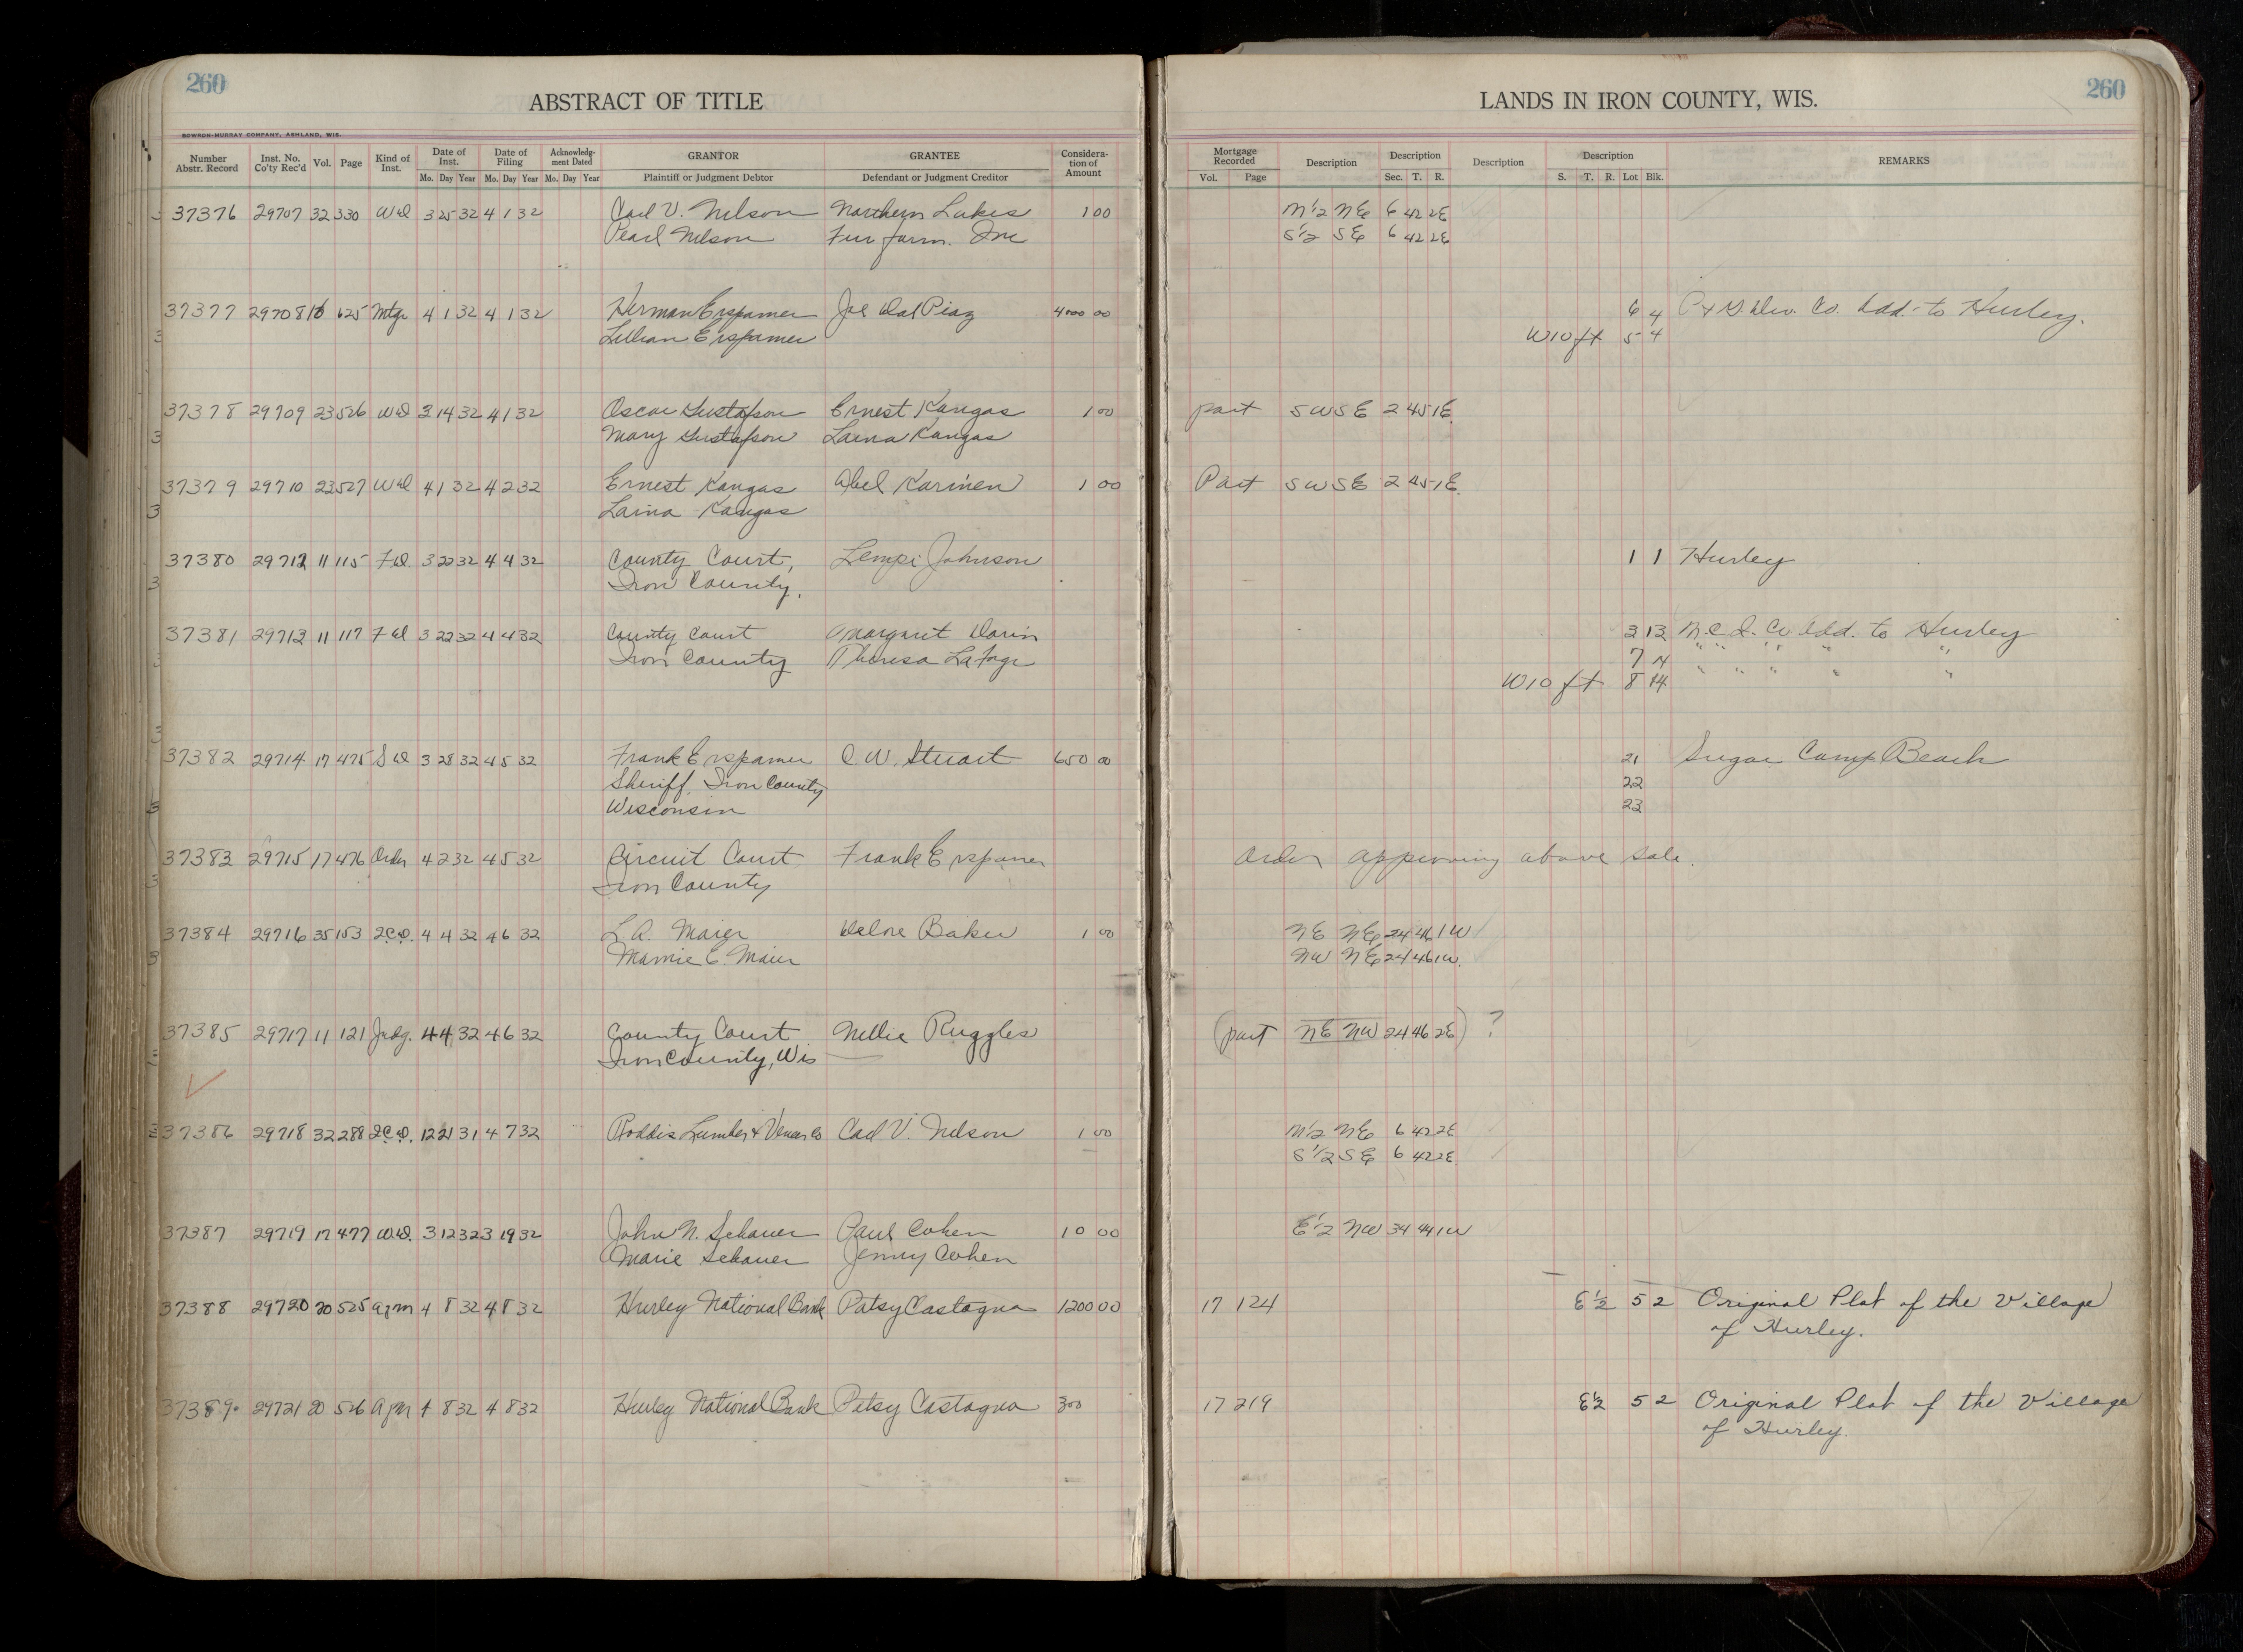 260
ABSTRACT OF TITLE
BOWRON-MURRAY COMPANY, ASHLAND, WIS.
Number Abstr. Record Inst. No. Co'ty Rec'd Vol. Page Kind of Inst. Date of Inst. Mo. Day Year Date of Filing Mo. Day Year Acknowledgment Dated Mo. Day Year GRANTOR Plaintiff or Judgment Debtor GRANTEE Defendant or Judgment Creditor Consideration of Amount
37376 29707 32 330 Wd 3 25 32 4 1 32 Carl V. Nelson Northern Lakes 1 00
Pearl Nelson Fur Farm. Inc
37377 29708 16 625 Mtge 4 1 32 4 1 32 Herman Erspamer Joe Dal Piaz 4000 00
Lillian Erspamer
37378 29709 23 526 Wd 3 14 32 4 1 32 Oscar Gustafson Ernest Kangas 1 00
Mary Gustafson Laina Kangas
37379 29710 23 527 Wd 4 1 32 4 2 32 Ernest Kangas Abel Karinen 1 00
Laina Kangas
37380 29712 11 115 Fd. 3 22 32 4 4 32 County Court, Lempi Johnson
Iron County.
37381 29713 11 117 Fd 3 22 32 4 4 32 County Court Margaret Darin
Iron County Theresa LaForge
37382 29714 17 475 S d 3 28 32 4 5 32 Frank Erspamer C. W. Stuart 650 00
Sheriff, Iron County
Wisconsin
37383 29715 17 476 Order 4 2 32 4 5 32 Circuit Court Frank Erspamer
Iron County
37384 29716 35 153 2.C.D. 4 4 32 4 6 32 L. A. Maier Delore Baker 1 00
Mamie E. Maier
37385 29717 11 121 Judg. 4 4 32 4 6 32 County Court Nellie Ruggles
Iron County, Wis
37386 29718 32 288 2.C.D. 12 21 31 4 7 32 Roddis Lumber & Veneer Co Carl V. Nelson 1 00
37387 29719 17 477 W.D. 3 12 32 3 19 32 John N. Schauer Paul Cohen 10 00
Marie Schauer Jenny Cohen
37388 29720 20 525 agm 4 8 32 4 8 32 Hurley National Bank Patsy Castagna 1200 00
37389. 29721 20 526 agm 4 8 32 4 8 32 Hurley National Bank Patsy Castagna 300
260
LANDS IN IRON COUNTY, WIS.
Mortgage Recorded Vol. Page Description Description Sec. T. R. Description Description S. T. R. Lot Blk. REMARKS
N½ NE 6 42 2E
S½ SE 6 42 2E
6 4 Co. Add. to Hurley.
W10 ft 5 4
part SWSE 2 45 1E.
Part SWSE 2 45 1E.
1 1 Hurley
3 13 M. C. I. Co. Add. to Hurley
7 14 " " " " " "
W10 ft 8 14 " " " " "
21 Sugar Camp Beach
22
23
Order approving above sale.
NE NE 24 46 1W
NW NE 24 46 1W.
(part NE NW 24 46 2E) ?
N½ NE 6 42 2E
S½ SE 6 42 2E
E½ NW 34 44 1W
17 124 E½ 5 2 Original Plat of the Village
of Hurley.
17 219 E½ 5 2 Original Plat of the Village
of Hurley.